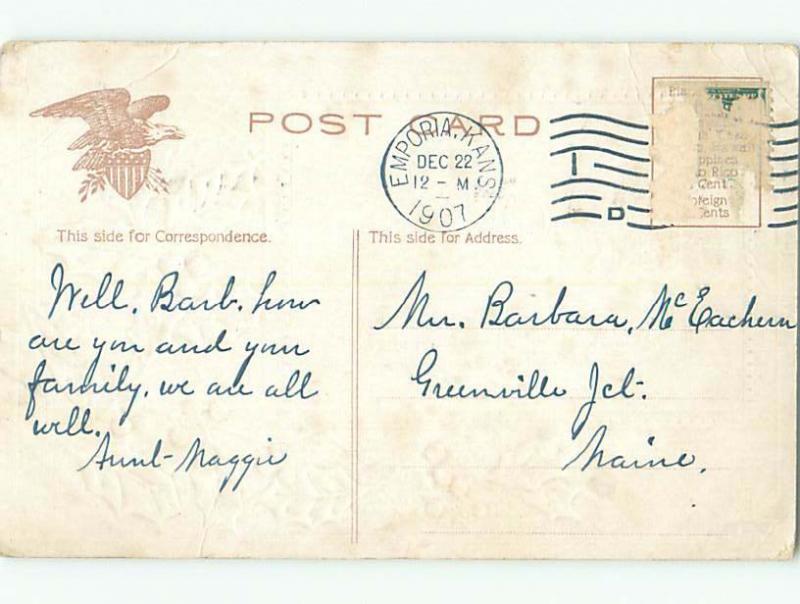 POST CARD
EMPORIA, KANS.
DEC 22
12 - M
1907
D
ppines
o Rico
Cent.
oreign
ents
This side for Correspondence.
This side for Address.
Well, Barb. how
are you and your
family. we are all
well.
Aunt Maggie
Mrs. Barbara, McEachern
Greenville Jct.
Maine.